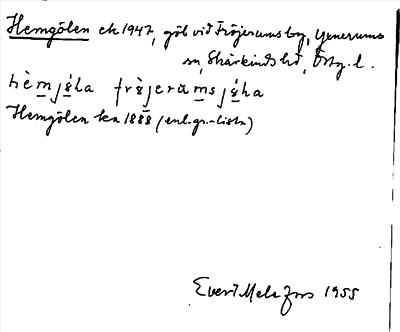 Hemgölen ek 1947, göl vid Fröjerums bg, Yxnerums
sn, Skärkinds hd, Östg. l.
Hemgölen ka 1888 (enl. gr.-lista)
Evert Melefors 1955